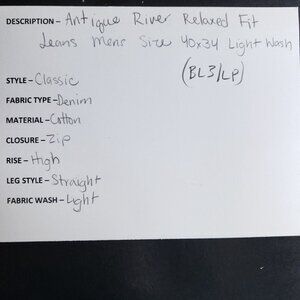 DESCRIPTION – Antique River Relaxed Fit
Jeans Mens Size 40x34 Light Wash
(BL3/LP)
STYLE – Classic
FABRIC TYPE – Denim
MATERIAL – Cotton
CLOSURE – Zip
RISE – High
LEG STYLE – Straight
FABRIC WASH – Light